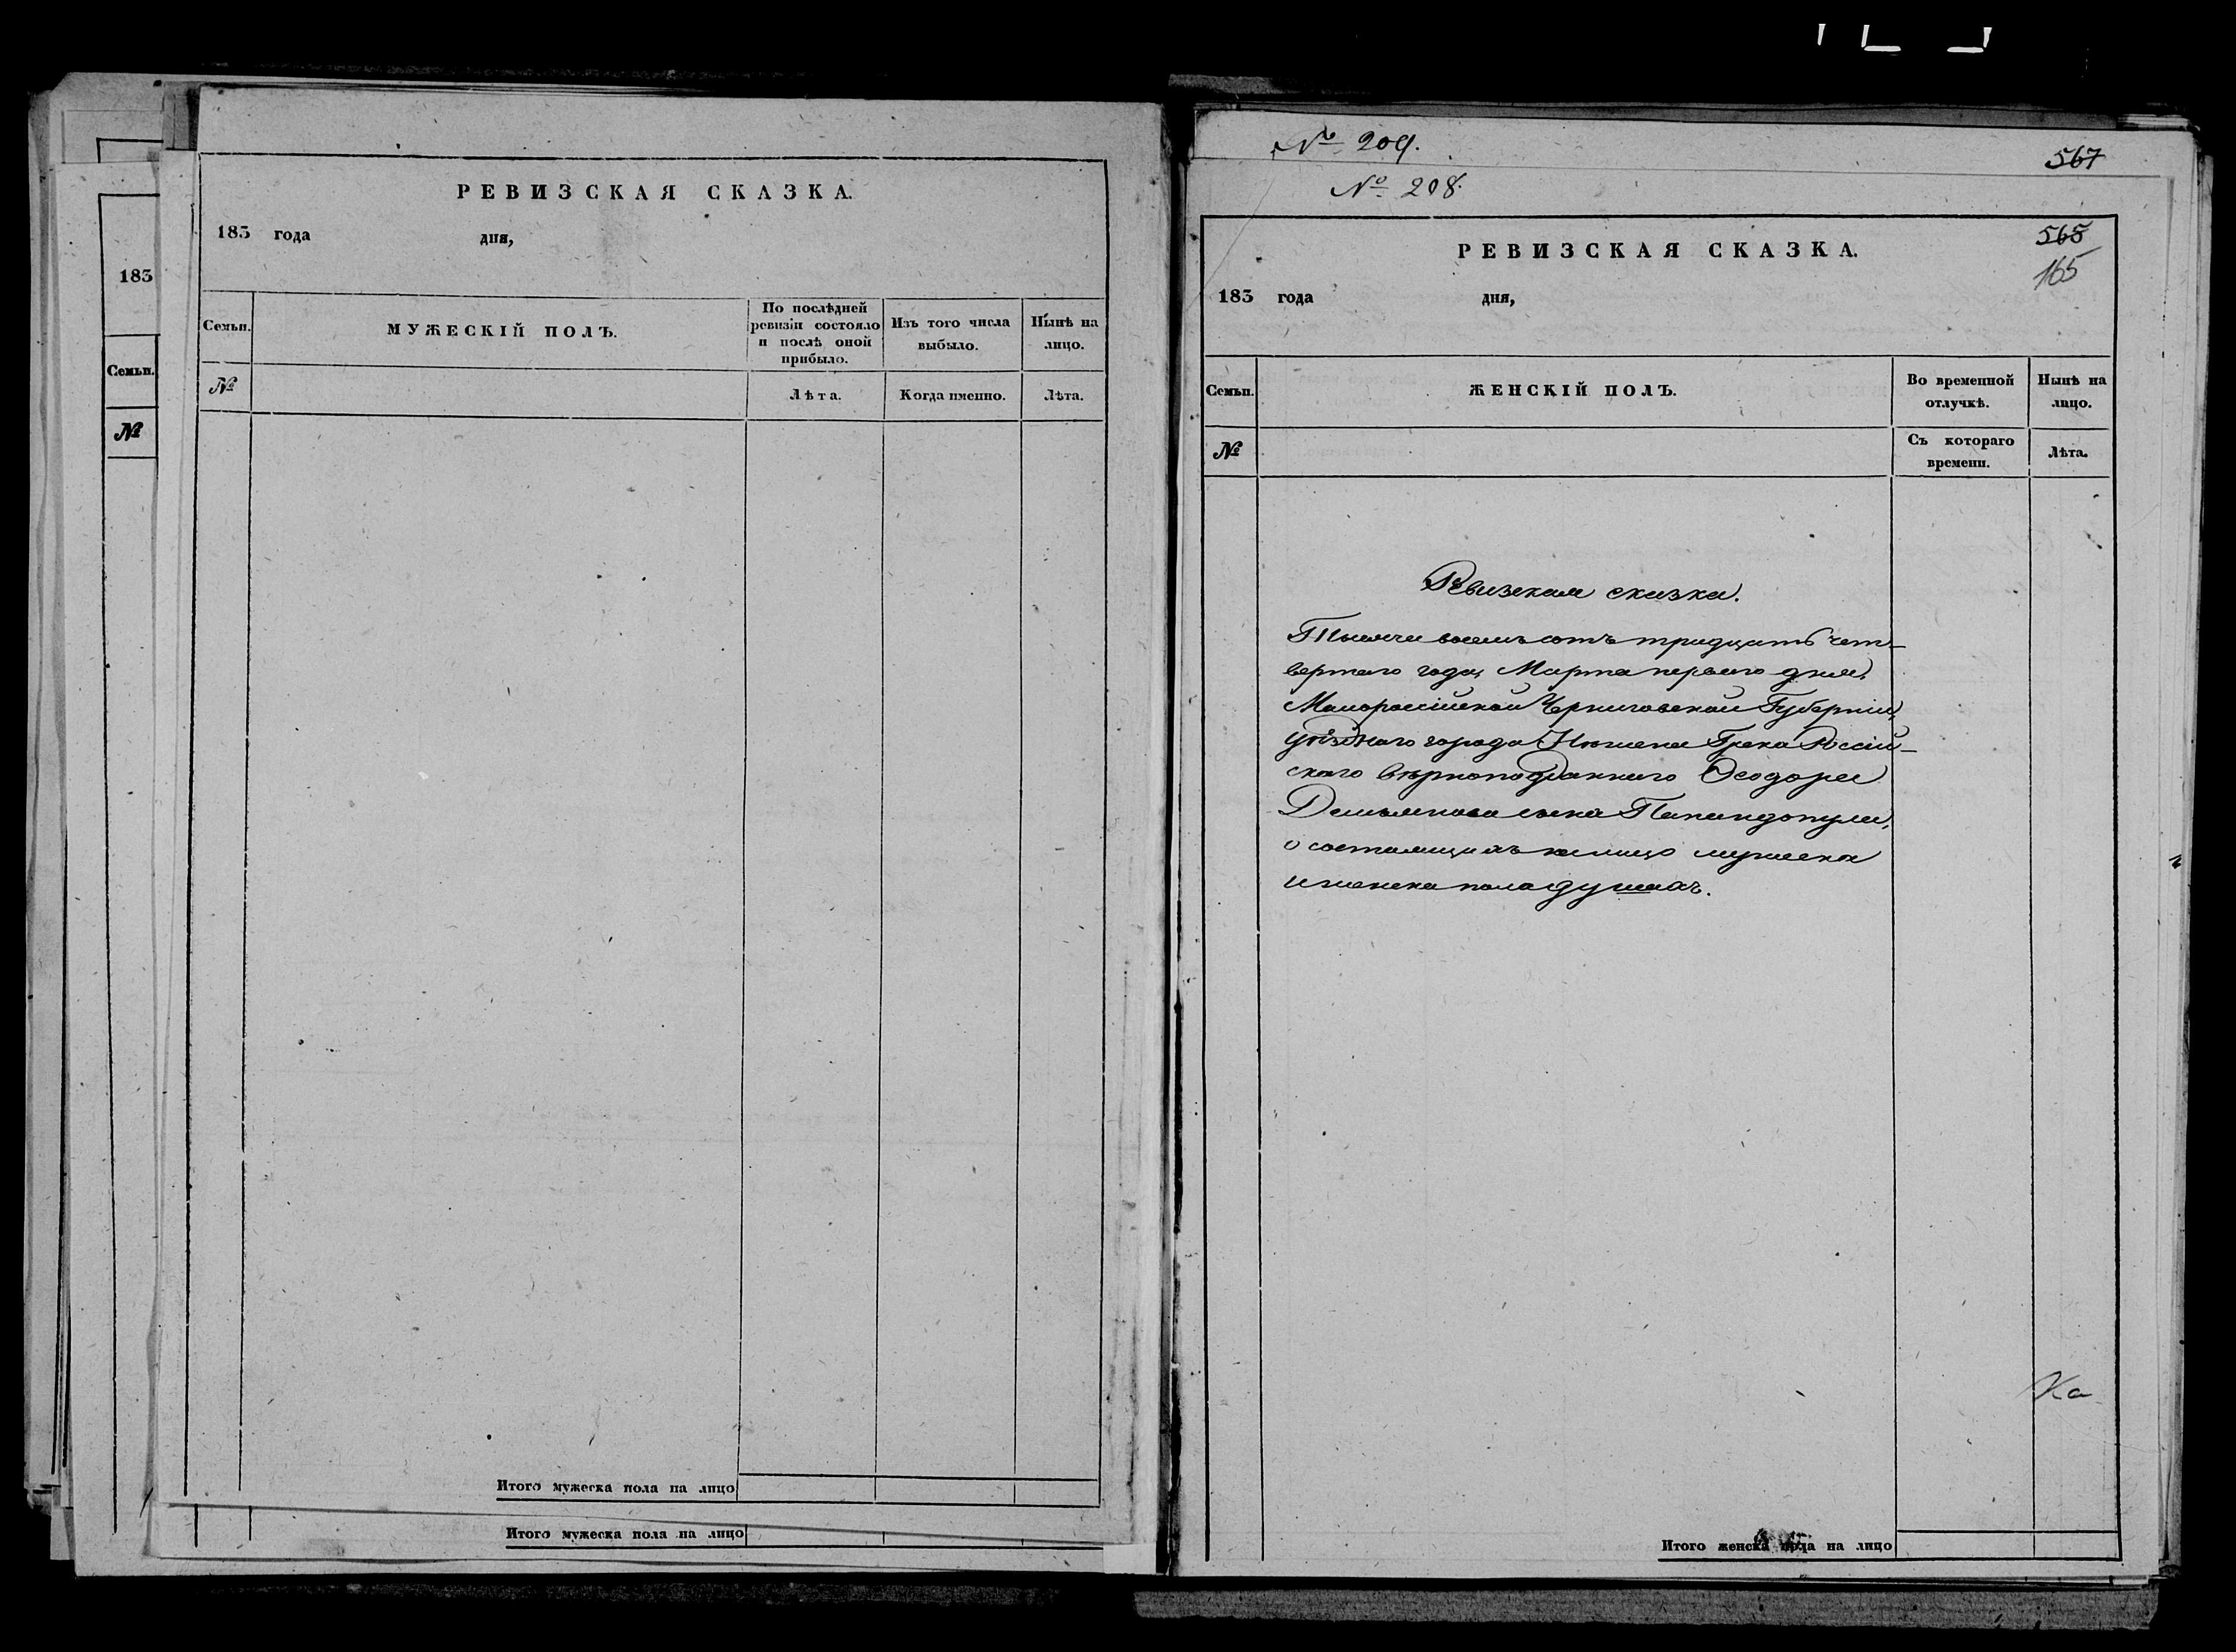 183
Семьи.
№
РЕВИЗСКАЯ СКАЗКА.
183 года дня,
Семьи.
МУЖЕСКІЙ ПОЛЪ.
По послѣдней ревизіи состояло и послѣ оной прибыло.
Изъ того числа выбыло.
Нынѣ на лицо.
№
Лѣта.
Когда именно.
Лѣта.
Итого мужеска пола на лицо
Итого мужеска пола на лицо
№ 209.
567
№ 208.
РЕВИЗСКАЯ СКАЗКА.
565
165
183 года дня,
Семьи.
ЖЕНСКІЙ ПОЛЪ.
Во временной отлучкѣ.
Нынѣ на лицо.
№
Съ котораго времени.
Лѣта.
Ревизская сказка.
Тысяча восемъ сотъ тридцать чет-
вертаго года, Марта перваго дня,
Малороссійской Черниговской Губерніи,
уѣзднаго города Нѣжина Грека Россій-
скаго вѣрноподданнаго Ѳеодора
Демьянова сына Папандопула,
о состоящихъ на лицо мужеска
и женска пола душахъ.
Ка
Итого женска пола на лицо